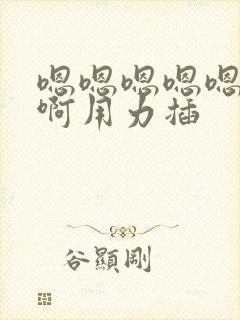 嗯嗯嗯嗯嗯
啊用力插
谷顯剛